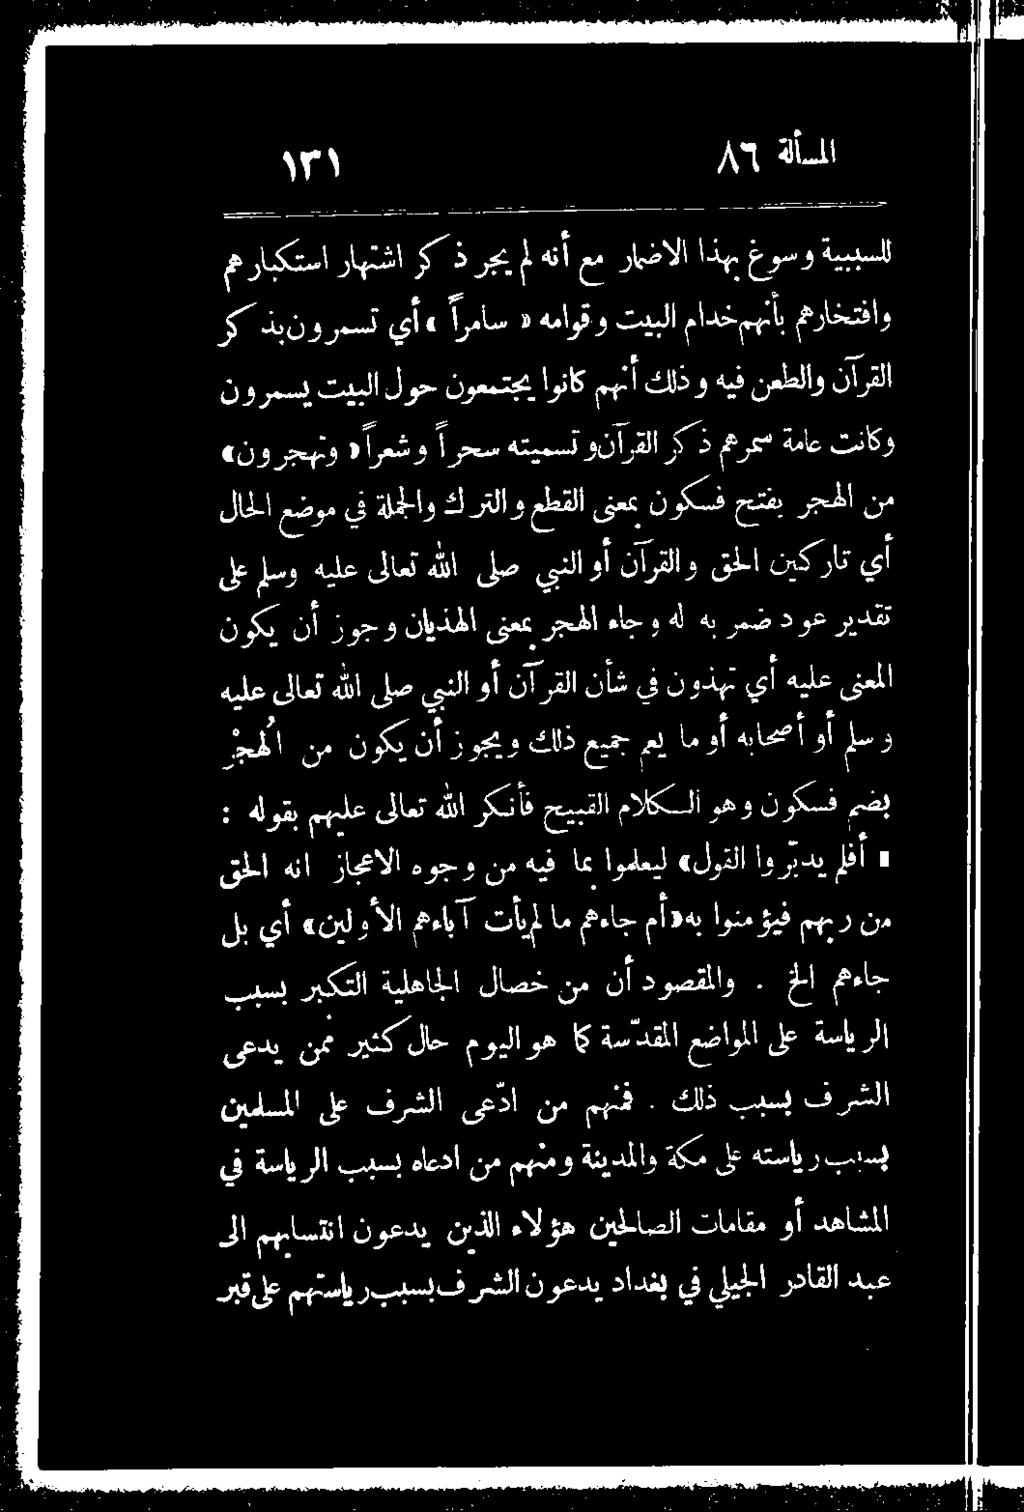 المسألة ٨٦ ١٣١
للسببية وسوغ بهذا الاضمار مع أنه لم يجر ذكر اشتهار استكبارهم
وافتخارهم بأنهم خدام البيت وقوامه « سامراً » أي تسمرون بذكر
القرآن والطعن فيه وذلك أنهم كانوا يجتمعون حول البيت يسمرون
وكانت عامة سمرهم ذكر القرآن وتسميته سحراً وشعراً « وتهجرون »
من الهجر بفتح فسكون بمعنى القطع والترك والجملة في موضع الحال
أي تاركين الحق والقرآن أو النبي صلى الله تعالى عليه وسلم على
تقدير عود ضمر به له وجاء الهجر بمعنى الهذيان وجوز أن يكون
المعنى عليه أي تهذون في شأن القرآن أو النبي صلى الله تعالى عليه
وسلم أو أصحابه أو ما يعم جميع ذلك ويجوز أن يكون من الُهجْرِ
بضم فسكون وهو الكلام القبيح فأنكر الله تعالى عليهم بقوله :
« أفلم يدبّروا القول » ليعلموا بما فيه من وجوه الاعجاز انه الحق
من ربهم فيؤمنوا به « أم جاءهم ما لم يأت آباءهم الأولين » أي بل
جاءهم الخ . والمقصود أن من خصال الجاهلية التكبر بسبب
الرياسة على المواضع المقدّسة كما هو اليوم حال كثير ممن يدعى
الشرف بسبب ذلك . فمنهم من ادّعى الشرف على المسلمين
بسبب رياسته على مكة والمدينة ومنهم من ادعاه بسبب الرياسة في
المشاهد أو مقامات الصالحين هؤلاء الذين يدعون انتسابهم الى
عبد القادر الجيلي في بغداد يدعون الشرف بسبب رياستهم على قبر